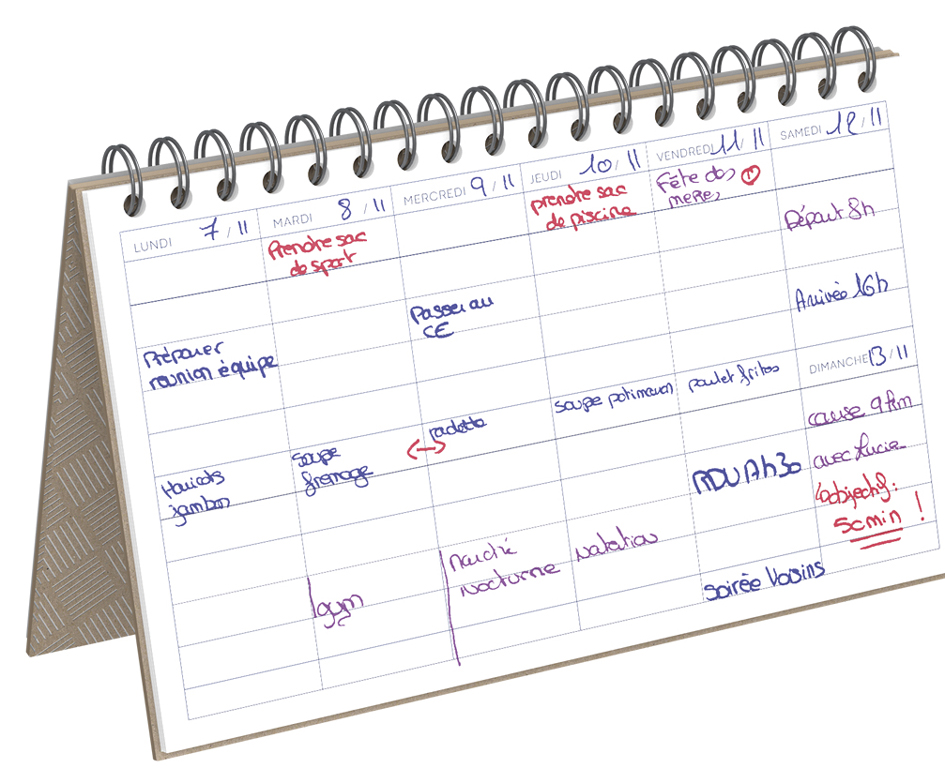 LUNDI 7/11
MARDI 8/11
MERCREDI 9/11
JEUDI 10/11
VENDREDI 11/11
SAMEDI 12/11
Prendre sac
de sport
prendre sac
de piscine
Fête des
mères
Départ 8h
Préparer
reunion équipe
Passer au
CE
Arrivée 16h
DIMANCHE 13/11
Haricots
jambon
Soupe
fromage
raclette
soupe potimarron
poulet frites
course 9 km
avec Lucie
objectif:
50 min !
RDV
gym
Marché
nocturne
natation
soirée Voisins